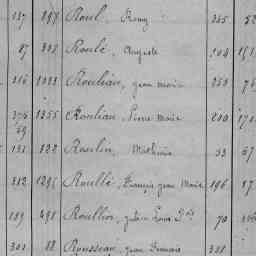 137 897 Roul, Remy 345 52
87 302 Roulé, Auguste 104
316 1033 Rouliau, Jean Marie 259 76
376 1355 Rouliau Pierre Marie 200 170
69
131 122 Roulin, Mathurin 33 67
312 1296 Roullé, François Jean Marie 196 17
189 491 Roullier, Julien Louis 70
301 88 Rousseau, Jean Francois 331